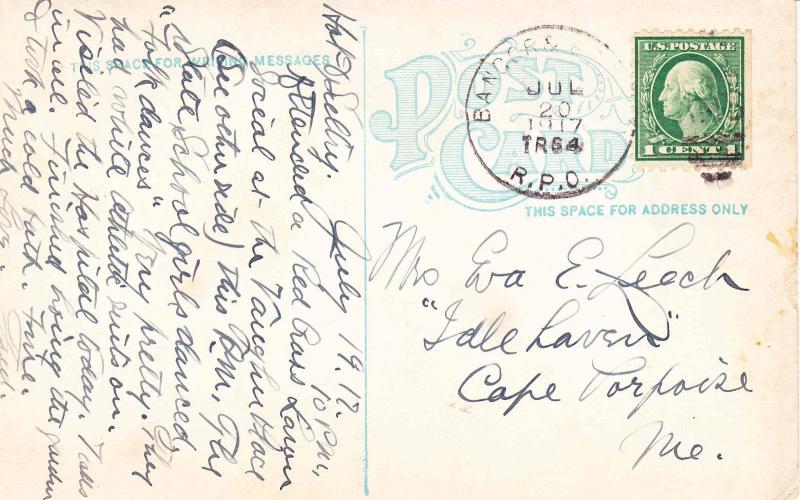 THIS SPACE FOR WRITING MESSAGES
July 19. 17.
10 P.M.
Hot & Sultry.
Attended a Red Cross Lawn
social at the Vaughn Place
(See other side) this P.M. The
State School girls danced
"folk dances" Very pretty. They
had white athletic suits on.
Visited the Hospital today. Talks
in well. Finished hoeing the garden
& took a cold bath. Fine.
Much Love.
POST
CARD
BANGOR &
JUL
20
1917
TR64
R.P.O.
U.S. POSTAGE
1 CENT 1
THIS SPACE FOR ADDRESS ONLY
Mrs Eva E. Leech
"Idle haven"
Cape Porpoise
Me.